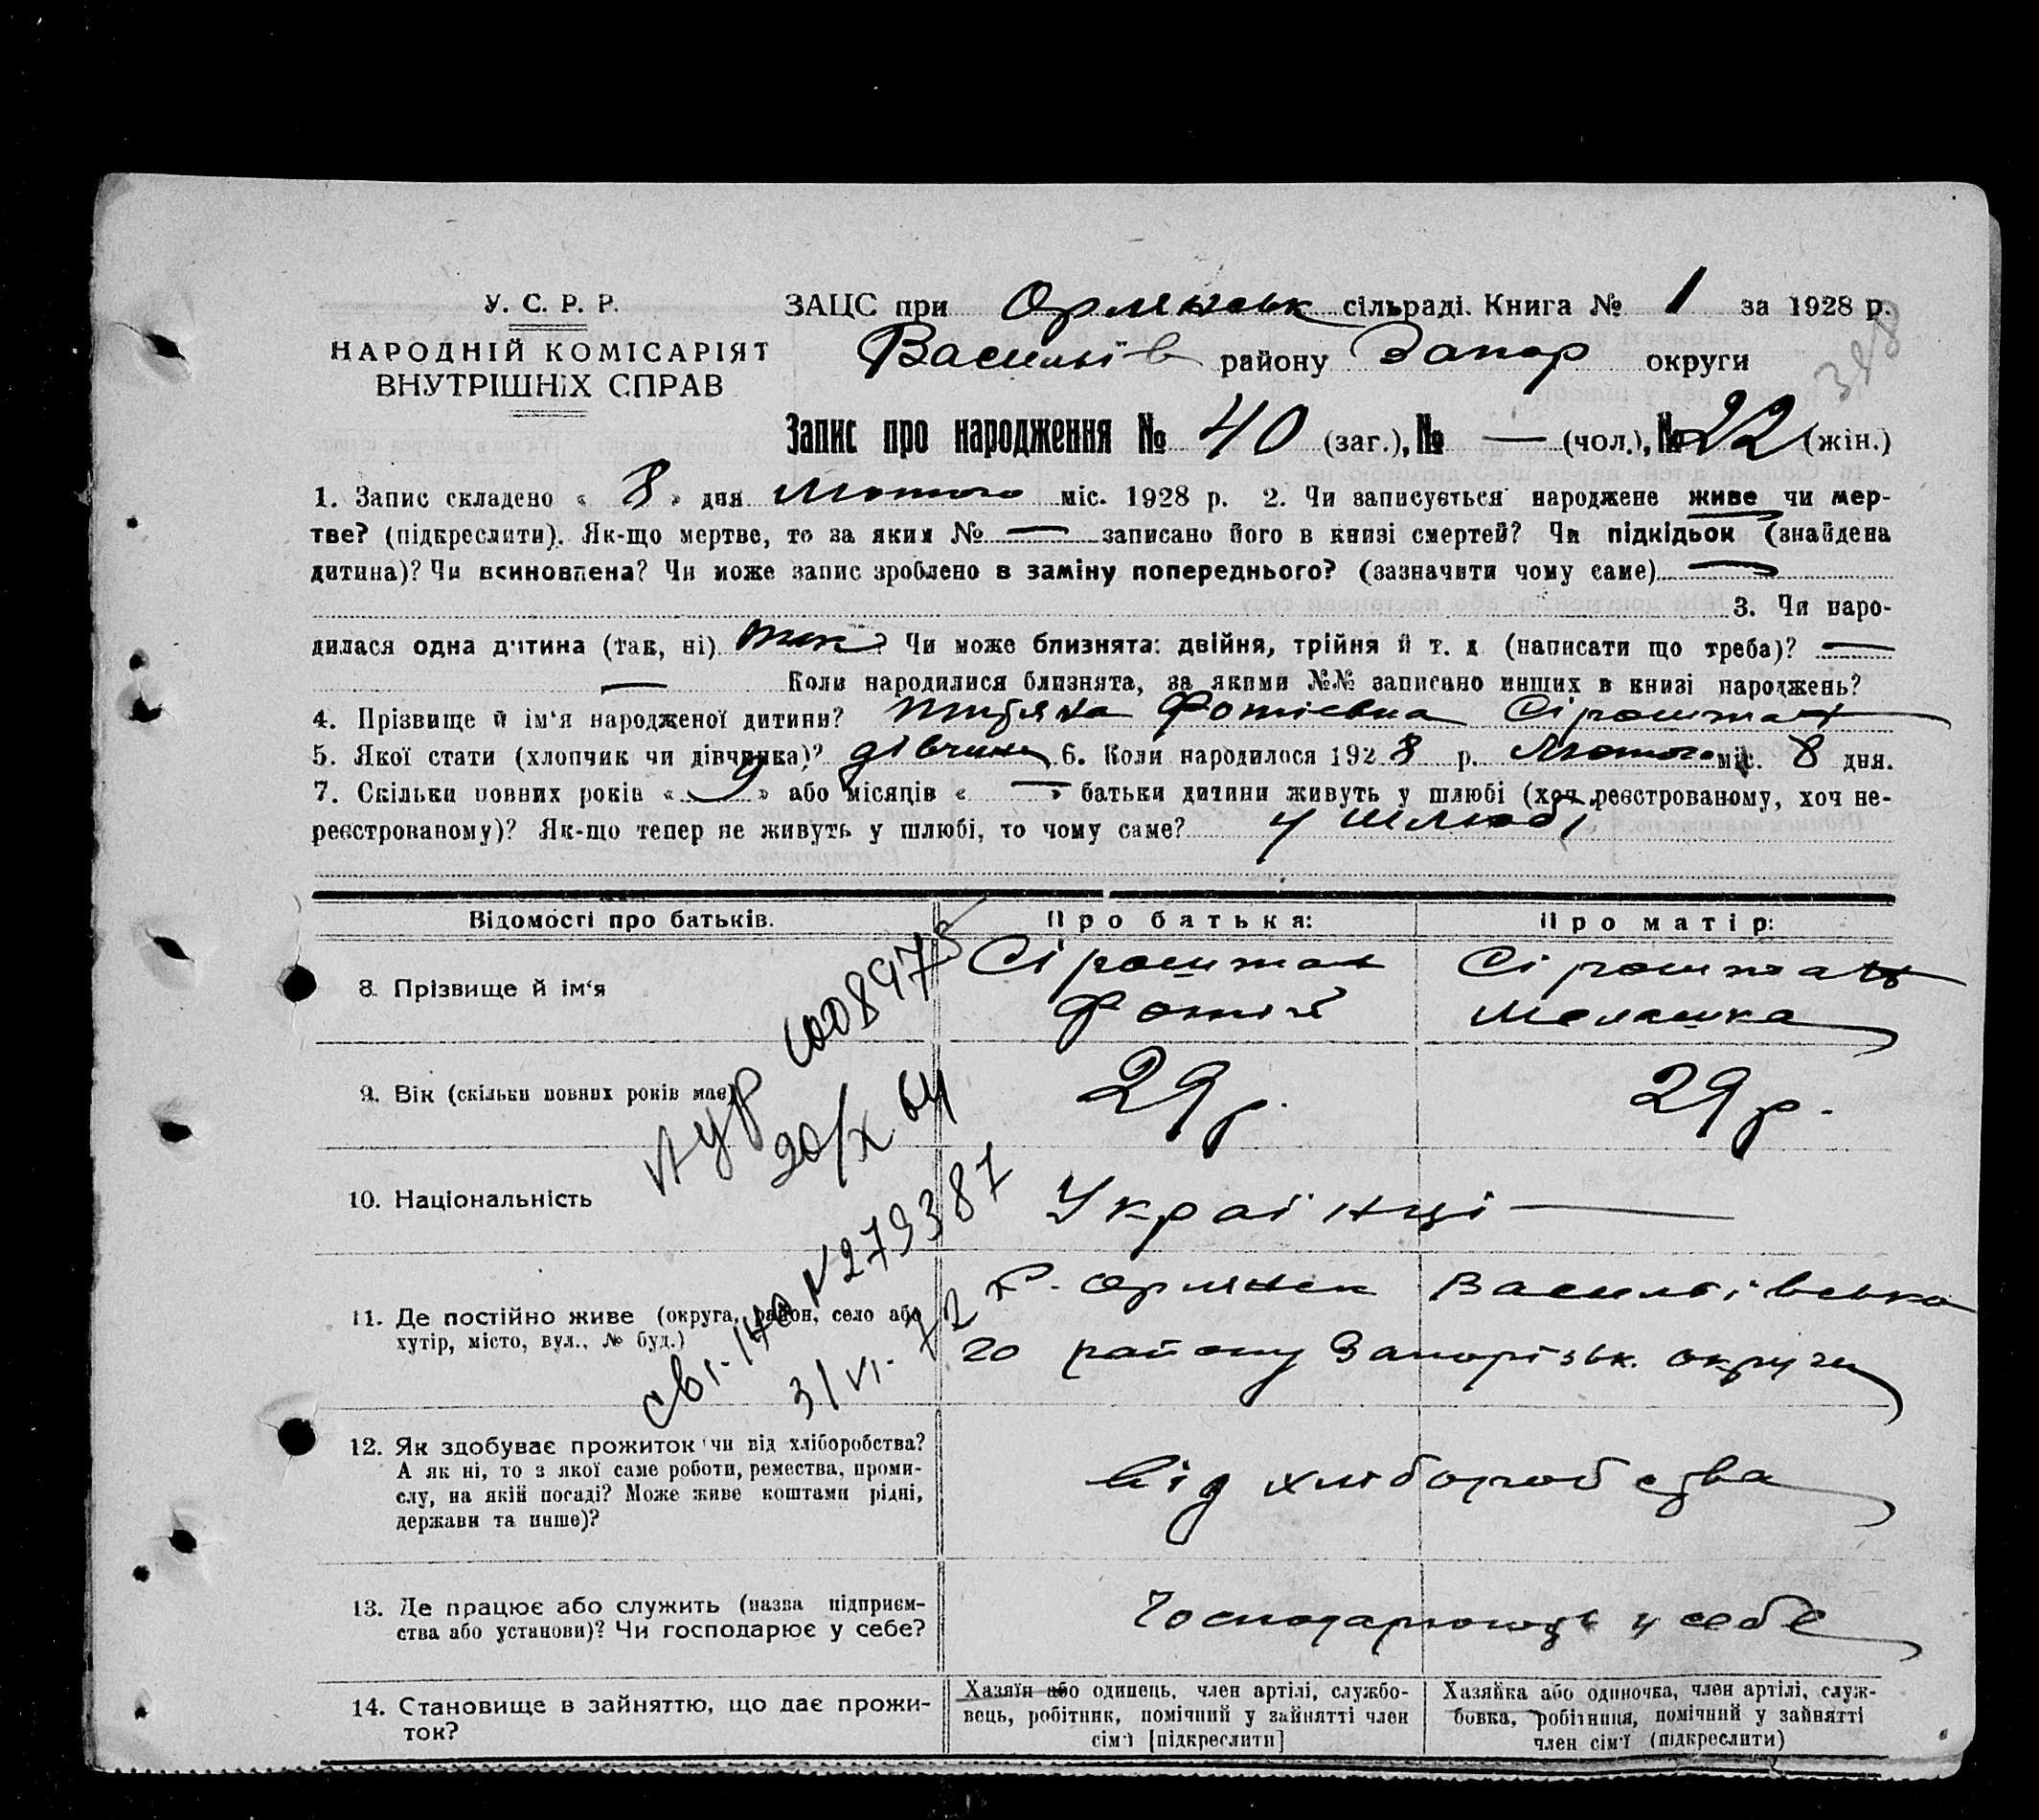 У. С. Р. Р.
НАРОДНІЙ КОМІСАРІЯТ
ВНУТРІШНІХ СПРАВ
ЗАЦС при Орлянськ сільраді. Книга № 1 за 1928 р.
Василів району Запор округи
348
Запис про народження № 40 (заг.), № — (чол.), № 22 (жін.)
1. Запис складено « 8 » дня Лютого міс. 1928 р. 2. Чи записується народжене живе чи мер-
тве? (підкреслити). Як-що мертве, то за яким № — записано його в книзі смертей? Чи підкідьок (знайдена
дитина)? Чи всиновлена? Чи може запис зроблено в заміну попереднього? (зазначити чому саме) —
3. Чи наро-
дилася одна дитина (так, ні) так Чи може близнята: двійня, трійня й т. д. (написати що треба)? —
— Коли народилися близнята, за якими №№ записано инших в книзі народжень?
4. Прізвище й ім‘я народженої дитини? Фотієвна Сіроштан
5. Якої стати (хлопчик чи дівчинка)? дівчина 6. Коли народилося 1928 р. Лютого міс. 8 дня.
7. Скільки повних років « 9 » або місяців « — » батьки дитини живуть у шлюбі (хоч реєстрованому, хоч не-
реєстрованому)? Як-що тепер не живуть у шлюбі, то чому саме? у шлюбі
Відомості про батьків. Про батька: Про матір:
8. Прізвище й ім‘я Сіроштан Фотій Сіроштан Мелашка
9. Вік (скільки повних років має) 29 р. 29 р.
10. Національність Українці —
11. Де постійно живе (округа, район, село або
хутір, місто, вул., № буд.)
с. Орлянськ Васильівсько
го району Запорізьк. округи
12. Як здобуває прожиток чи від хліборобства?
А як ні, то з якої саме роботи, ремества, проми-
слу, на якій посаді? Може живе коштами рідні,
держави та инше)?
від хліборобства
13. Де працює або служить (назва підприєм-
ства або установи)? Чи господарює у себе?
Господарюють у себе
14. Становище в зайняттю, що дає прожи-
ток?
Хазяїн або одинець, член артілі, службо-
вець, робітник, помічний у зайнятті член
сім‘ї [підкреслити]
Хазяйка або одиночка, член артілі, служ-
бовка, робітниця, помічний у зайнятті
член сім‘ї (підкреслити)
20/X 64
N 279387
3/VI. 72